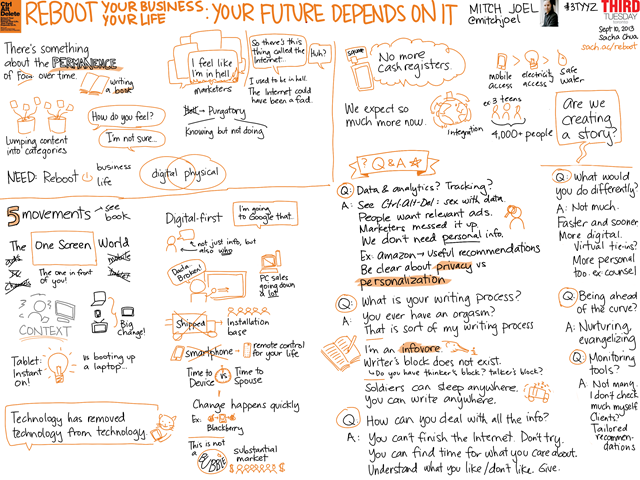 Ctrl Alt Delete
REBOOT YOUR BUSINESS: YOUR LIFE: YOUR FUTURE DEPENDS ON IT
MITCH JOEL
@mitchjoel
#3TYYZ
THIRD
TUESDAY
Sept 10, 2013
Sacha Chua
sach.ac/reboot
There's something
about the PERMANENCE
of form over time.
writing
a book
Lumping content
into categories
How do you feel?
I'm not sure...
NEED: Reboot
business
life
digital
physical
I feel like
I'm in hell
marketers
So there's this
thing called the
Internet...
Huh?
I used to be in hell.
The Internet could
have been a fad.
Hell → Purgatory
Knowing but not doing
square
No more
cash registers.
We expect so
much more now.
Integration
mobile
access
>
electricity
access
>
safe
water
ex 3 teens
4,000+ people
Are we
creating
a story?
5 movements → see
book
The One Screen World
The one in front
of you!
CONTEXT
Big
change!
Tablet:
Instant
on!
vs booting up
a laptop...
Technology has removed
technology from technology.
Digital-first
I'm going
to Google that.
not just info, but
also who
Dada
Broken!
PC sales
going down
a lot
Shipped → Installation
base
smartphone = remote control
for your life
Time to
Device
vs
Time to
Spouse
Change happens quickly
Ex:
Blackberry
This is not
a BUBBLE
substantial
market
? Q & A
Q: Data & analytics? Tracking?
A: See Ctrl-Alt-Del: sex with data.
People want relevant ads.
Marketers messed it up.
We don't need personal info.
Ex: amazon → Useful recommendations
Be clear about privacy vs
personalization
Q: What is your writing process?
A: You ever have an orgasm?
That is sort of my writing process
I'm an infovore.
Writer's block does not exist.
↳ Do you have thinker's block? talker's block?
Soldiers can sleep anywhere.
You can write anywhere.
Q: How can you deal with all the info?
A: You can't finish the Internet. Don't try.
You can find time for what you care about.
Understand what you like/don't like. Give.
Q: What would
you do differently?
A: Not much.
Faster and sooner.
More digital.
Virtual tie-ins?
More personal
too. ex counsel
Q: Being ahead
of the curve?
A: Nurturing,
evangelizing
Q: Monitoring
tools?
A: Not many.
I don't check
much myself
Clients?
Tailored
recommen-
dations